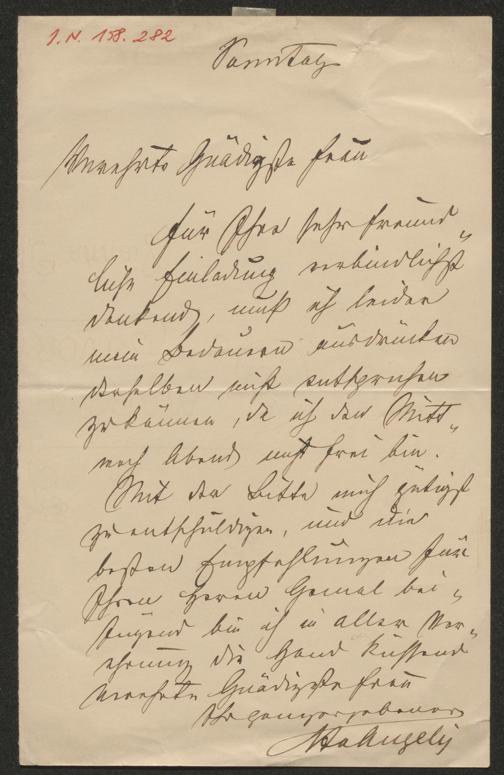 I. N. 158.282
Sonntag
Verehrte Gnädigste Frau
Für Ihre sehr freund-
liche Einladung verbindlichst
dankend, muß ich leider
mein Bedauern ausdrücken
derselben nicht entsprechen
zu können, da ich den Mitt-
woch Abend nicht frei bin.
Mit der Bitte mich gütigst
zu entschuldigen, und die
besten Empfehlungen für
Ihren Herrn Gemal bei-
fügend bin ich in aller Ver-
ehrung die Hand küssend
verehrte Gnädigste Frau
Ihr ganz ergebener
HvAngeli